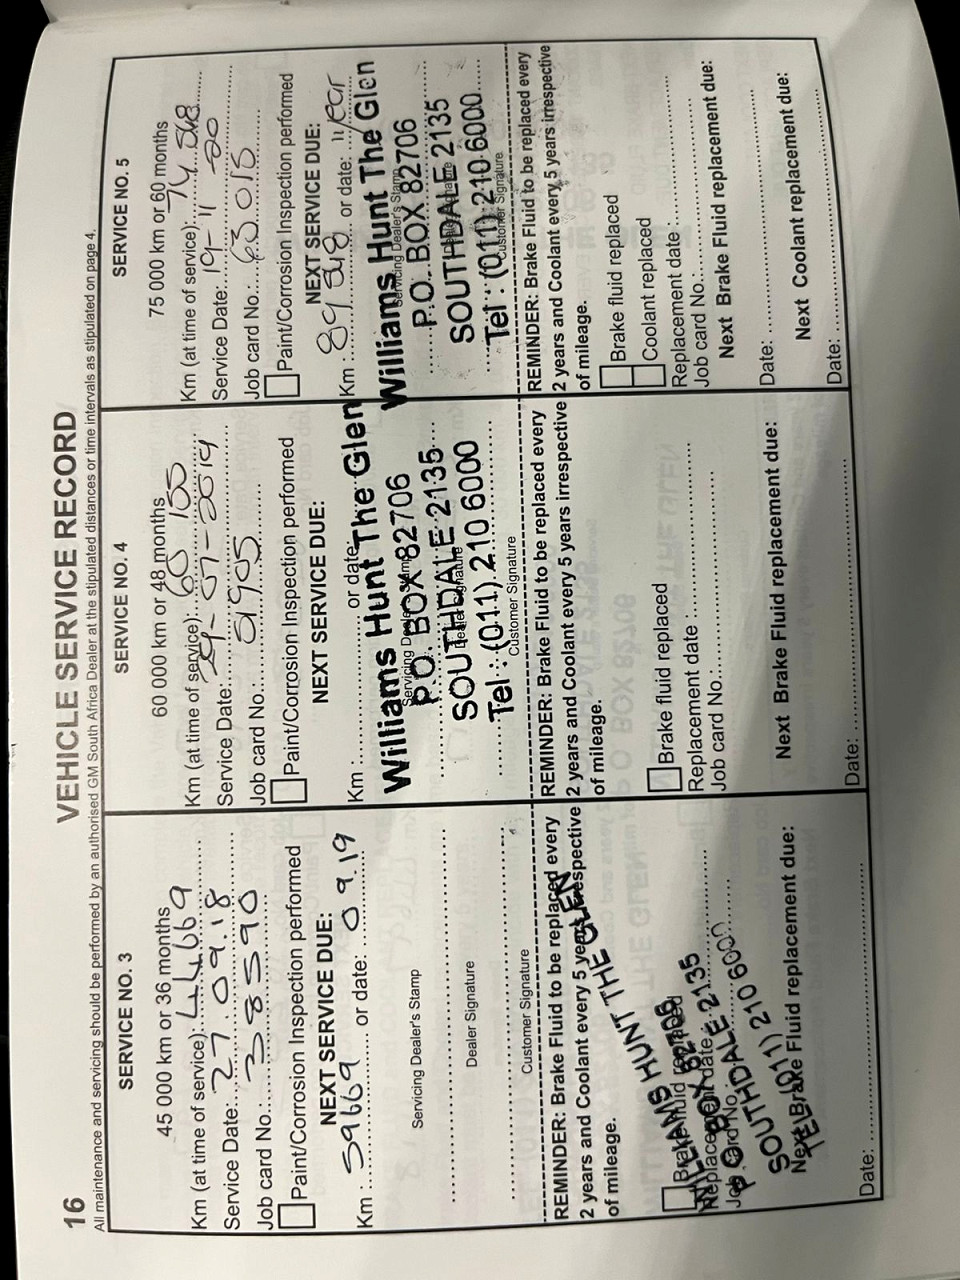 16
VEHICLE SERVICE RECORD
All maintenance and servicing should be performed by an authorised GM South Africa Dealer at the stipulated distances or time intervals as stipulated on page 4.
SERVICE NO. 3
45 000 km or 36 months
Km (at time of service): 44669
Service Date: 27.09.18
Job card No.: 38590
Paint/Corrosion Inspection performed
NEXT SERVICE DUE:
Km : 59669 or date: 09.19
Servicing Dealer's Stamp
Dealer Signature
Customer Signature
REMINDER: Brake Fluid to be replaced every
2 years and Coolant every 5 years irrespective
of mileage.
Brake fluid replaced
Replacement date
Job card No.
WILLIAMS HUNT THE GLEN
P O BOX 82706
SOUTHDALE 2135
TEL (011) 210 6000
Next Brake Fluid replacement due:
Date:
SERVICE NO. 4
60 000 km or 48 months
Km (at time of service): 60 100
Service Date: 29-07-2019
Job card No.:
Paint/Corrosion Inspection performed
NEXT SERVICE DUE:
Km : or date:
Williams Hunt The Glen
Servicing Dealer's Stamp
P.O. BOX 82706
SOUTHDALE 2135
Dealer Signature
Tel : (011) 210 6000
Customer Signature
REMINDER: Brake Fluid to be replaced every
2 years and Coolant every 5 years irrespective
of mileage.
Brake fluid replaced
Replacement date :
Job card No.:
Next Brake Fluid replacement due:
Date:
SERVICE NO. 5
75 000 km or 60 months
Km (at time of service): 74 548
Service Date: 19-11-20
Job card No.: 63015
Paint/Corrosion Inspection performed
NEXT SERVICE DUE:
Km : 89 548 or date: 1 year
Williams Hunt The Glen
Servicing Dealer's Stamp
P.O. BOX 82706
SOUTHDALE 2135
Dealer Signature
Tel : (011) 210 6000
Customer Signature
REMINDER: Brake Fluid to be replaced every
2 years and Coolant every 5 years irrespective
of mileage.
Brake fluid replaced
Coolant replaced
Replacement date :
Job card No.:
Next Brake Fluid replacement due:
Date:
Next Coolant replacement due:
Date: